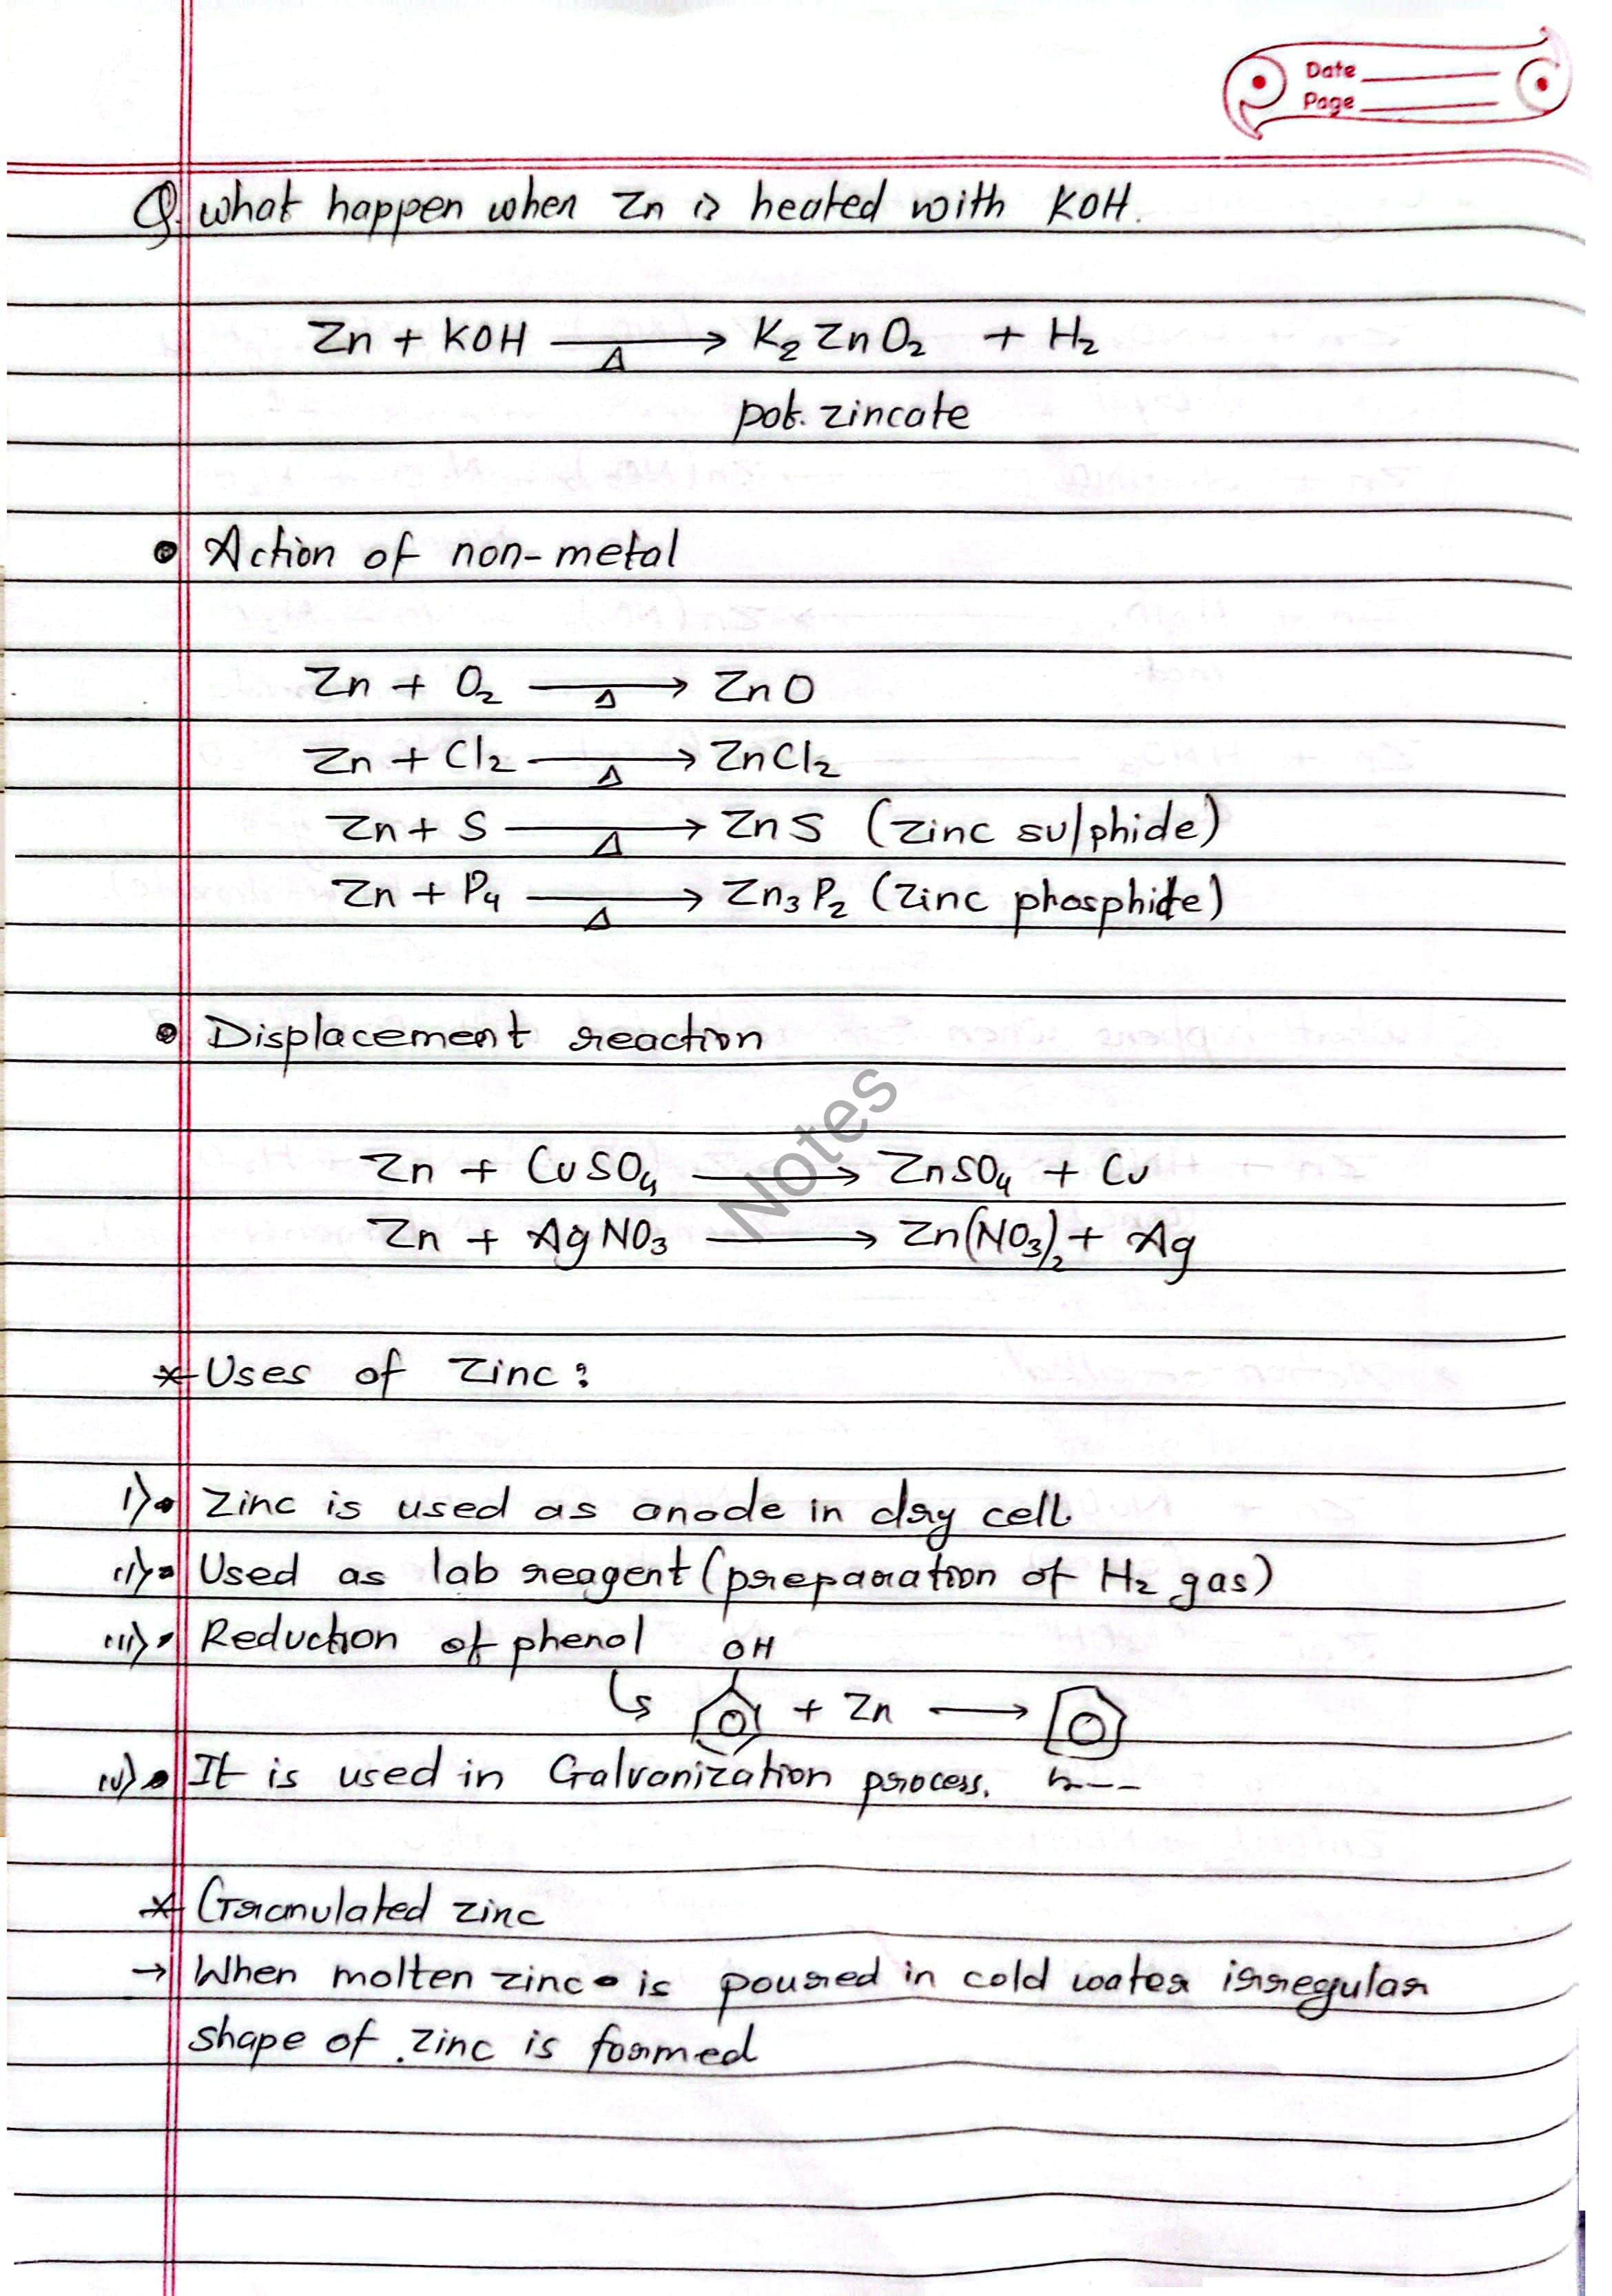 Date
Page
Q. what happen when Zn is heated with KOH.
Zn + KOH →Δ K₂ZnO₂ + H₂
pot. zincate
• Action of non-metal
Zn + O₂ →Δ ZnO
Zn + Cl₂ →Δ ZnCl₂
Zn + S →Δ ZnS (zinc sulphide)
Zn + P₄ →Δ Zn₃P₂ (zinc phosphide)
• Displacement reaction
Zn + CuSO₄ → ZnSO₄ + Cu
Zn + AgNO₃ → Zn(NO₃)₂ + Ag
Notes
* Uses of Zinc:
i)• Zinc is used as anode in dry cell.
ii)• Used as lab reagent (preparation of H₂ gas)
iii)• Reduction of phenol
OH
↳ + Zn →
iv)• It is used in Galvanization process.
* Granulated zinc
→ When molten zinc is poured in cold water irregular
shape of zinc is formed